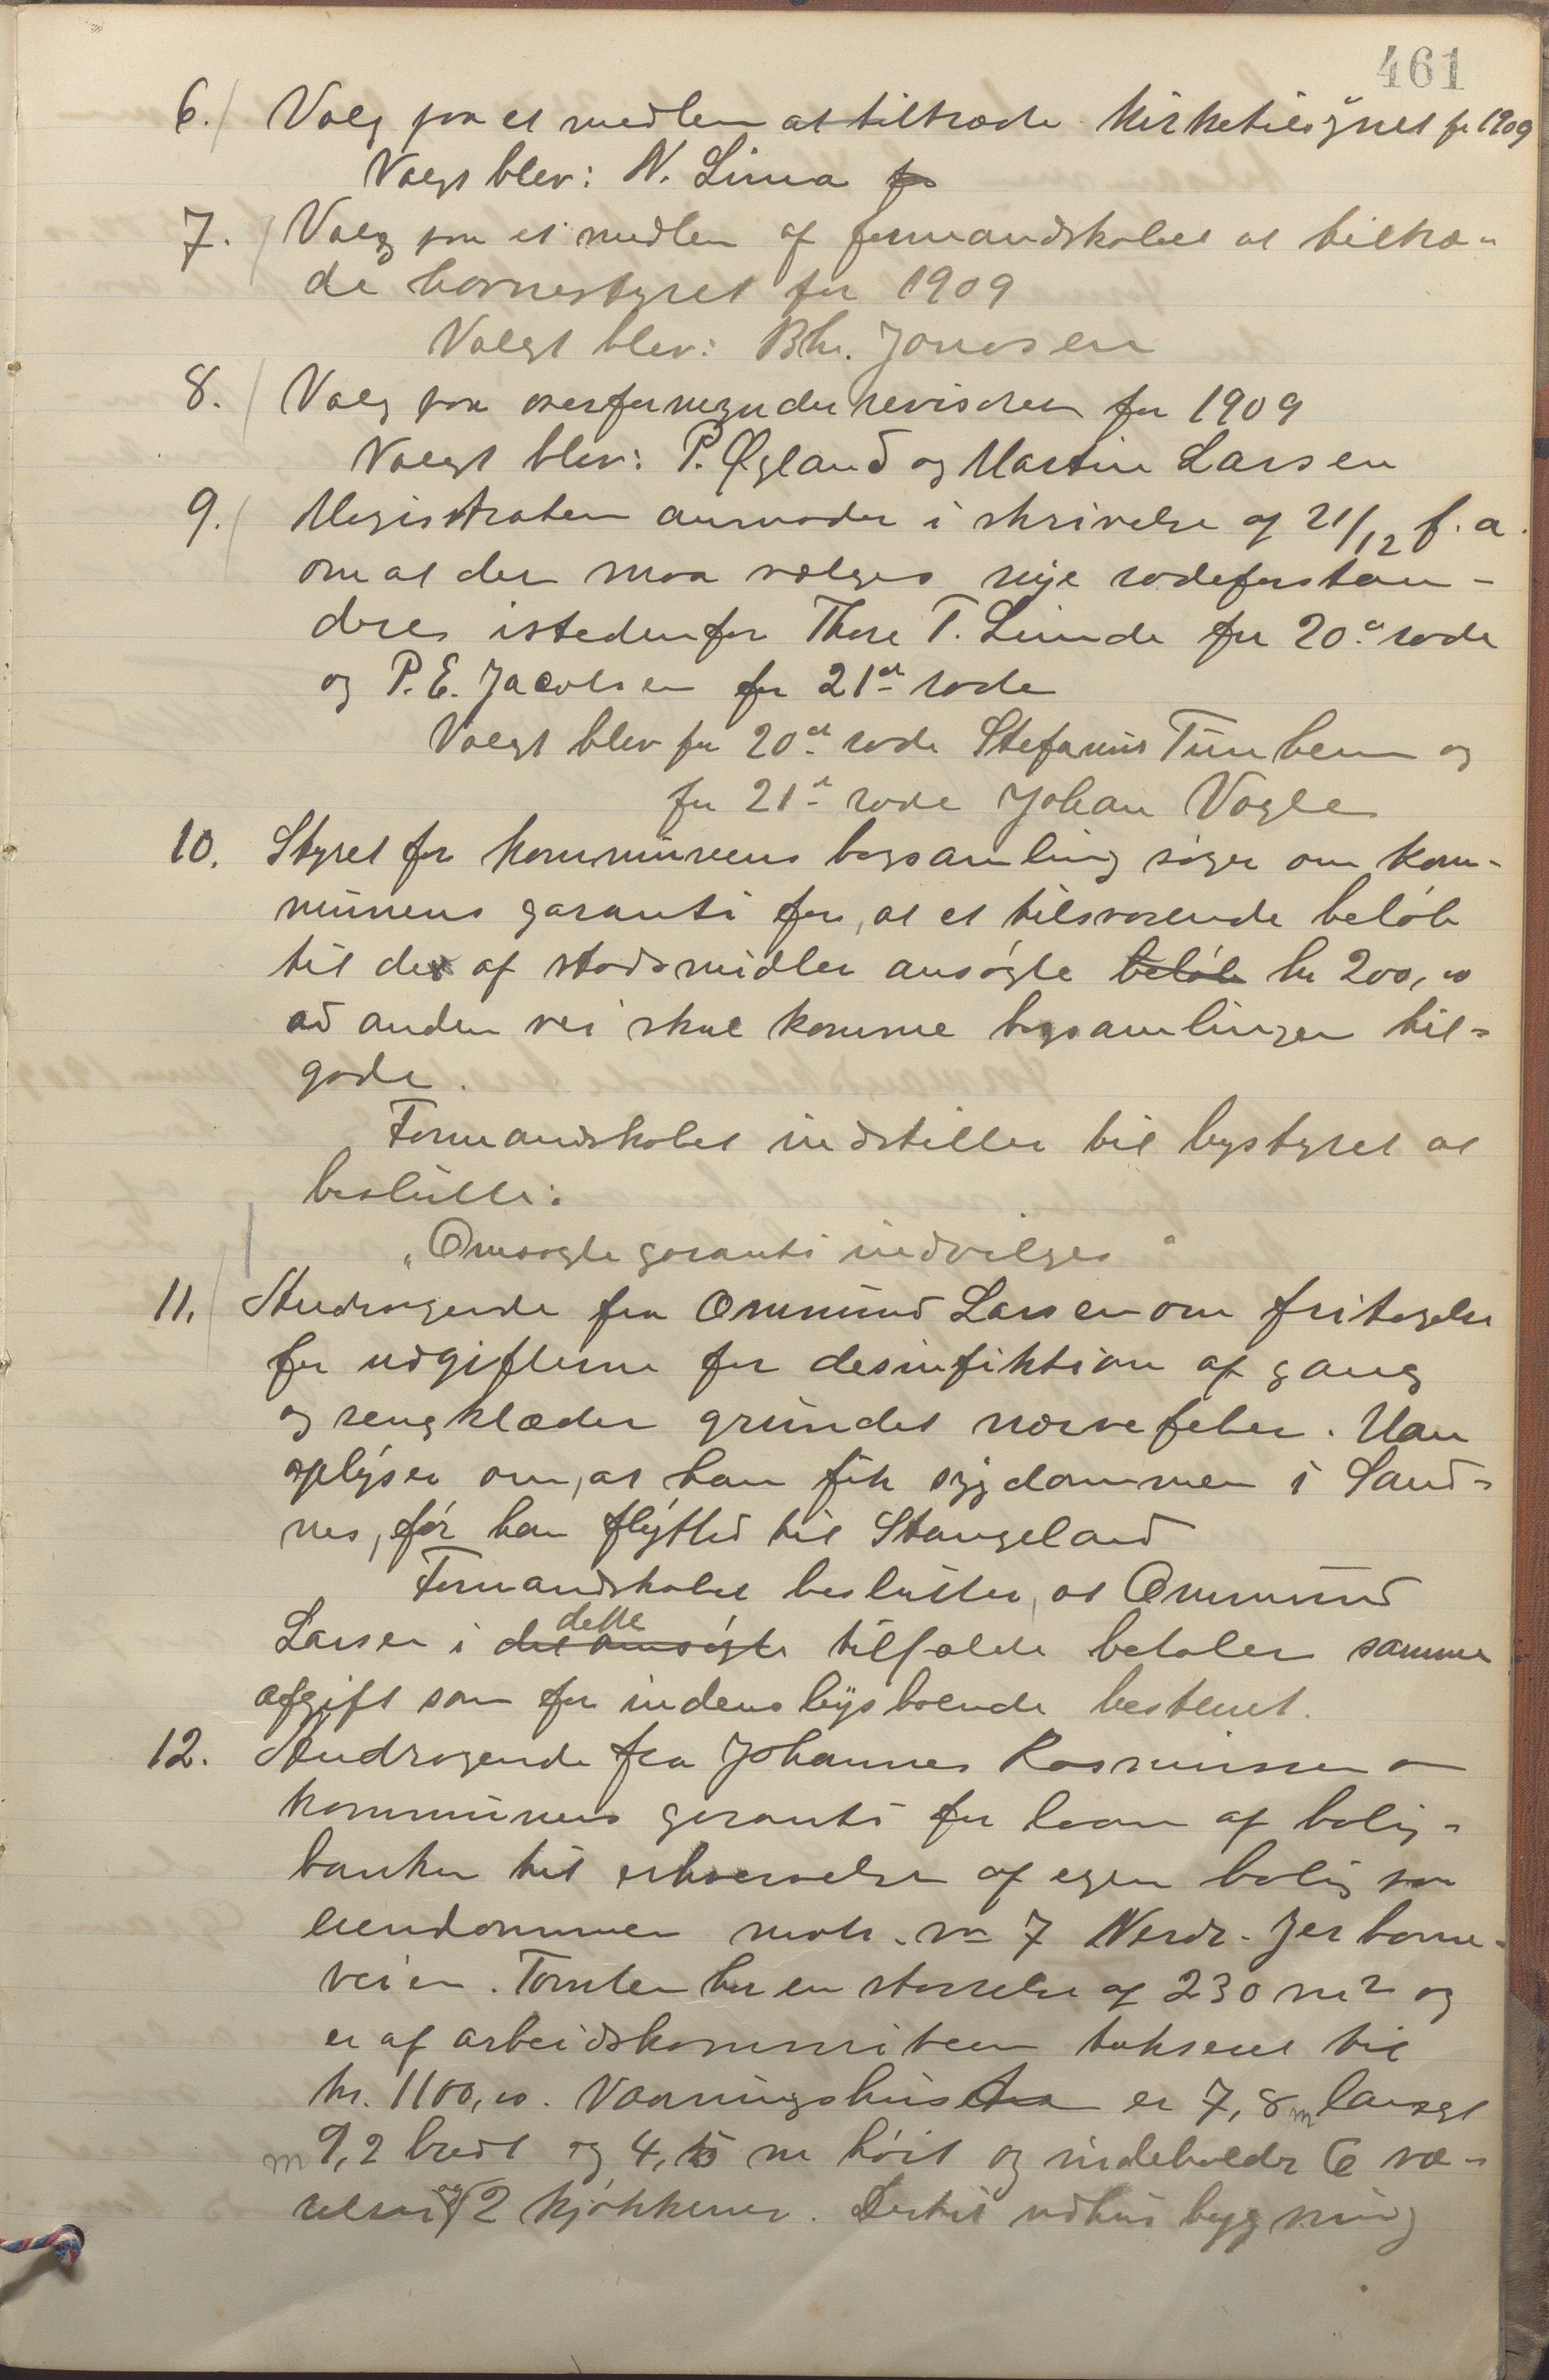 461
6. Valg paa et medlem at tiltræde kirketilsynet for 1909
Valgt blev: N. Lima
7. Valg paa et medlem af formandskabet at tiltræ-
de havnestyret for 1909
Valgt blev: Bh. Jonassen
8. Valg paa overformynderrevisorer for 1909
Valgt blev: P. Øgland og Martin Larsen
9. Magistraten anmoder i skrivelse af 21/12 f. a.
om at der maa vælges nye rodeforstan-
dere istedenfor Thore T. Lunde for 20de rode
og P. E. Jacobsen for 21de rode
Valgt blev for 20de rode Stefanus Tunheim og
for 21de rode Johan Vagle
10. Styret for kommunens bogsamling søger om kom-
munens garanti for, at et tilsvarende beløb
til det af statsmidler ansøgte beløb kr 200,00
ad anden vei skal komme bogsamlingen til-
gode.
Formandskabet indstiller til bystyret at
beslutte:
"Omsøgte garanti indvilges"
11. Andragende fra Ommund Larsen om fritagelse
for udgifterne for desinfiktion af gang
og sengklæder grundet nervefeber. Han
oplyser om, at han fik sygdommen i Sand-
nes, før han flytted til Stangeland
Formandskabet beslutter, at Ommund
dette
Larsen i det omsøgte tilfælde betaler samme
afgift som for indenbysboende bestemt.
12. Andragende fra Johannes Rasmussen om
kommunens garanti for laan af bolig-
banken til erhvervelse af egen bolig paa
eiendommen matr. no 7 Nerdr. Jerbane-
veien. Tomten har en størrelse af 230 m2 og
er af arbeidskommiteen takseret til
kr. 1100,00. Vaaningshuset er 7,8 m langt
m 9,2 bredt og 4,5 m høit og indeholder 6 væ-
relser og 2 kjøkkener. Dertil udhusbygning